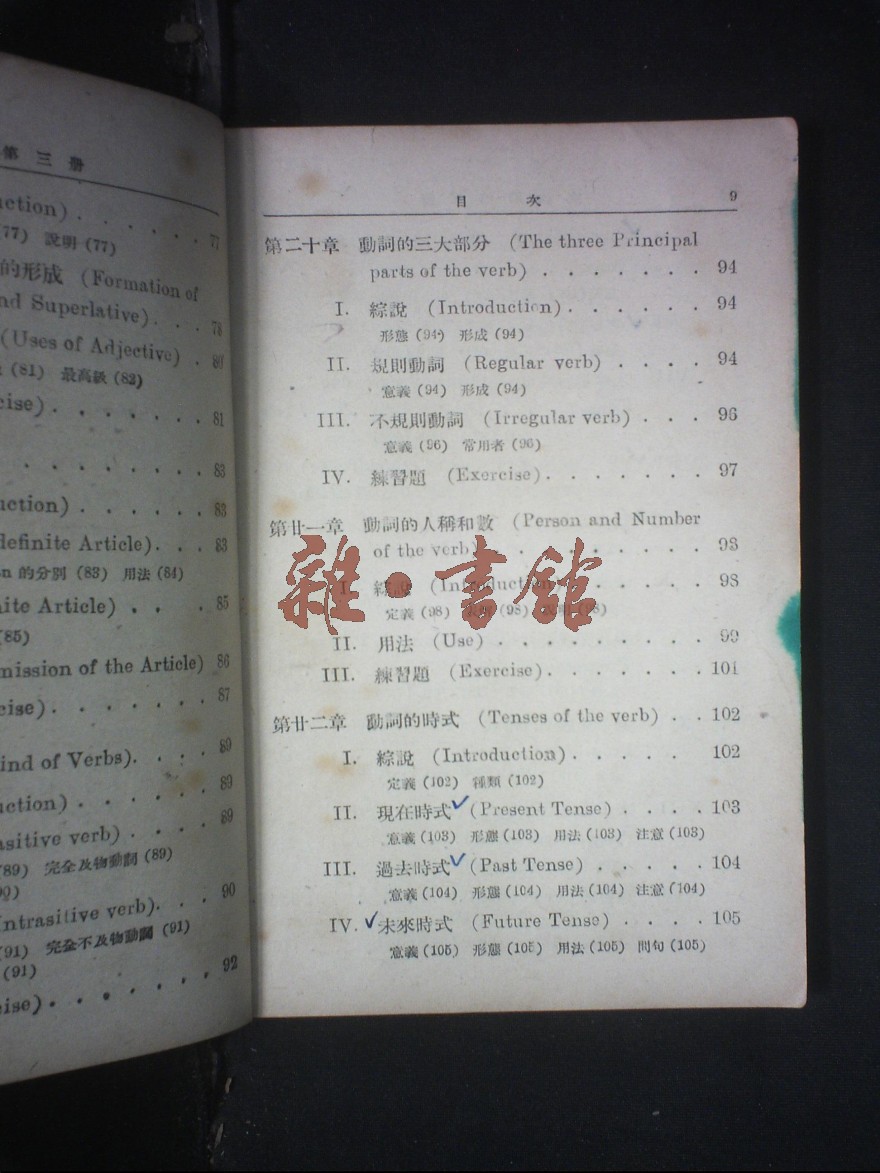 第三册
uction) . . . . . 77
77) 說明 (77)
的形成 (Formation of
nd Superlative) . . . 78
(Uses of Adjective) . 80
(81) 最高級 (82)
cise) . . . . . . . 81
. . . . . . . . 83
uction) . . . . . . 83
definite Article) . . . 83
an 的分別 (83) 用法 (84)
nite Article) . . . 85
(85)
mission of the Article) 86
cise) . . . . . . . 87
ind of Verbs) . . . . 89
uction) . . . . . . 89
asitive verb) . . . . 89
(89) 完全及物動詞 (89)
ntrasitive verb) . . . 90
(91) 完全不及物動詞 (91)
(91)
ise) . . . . . . . 92
目 次 9
第二十章 動詞的三大部分 (The three Principal
parts of the verb) . . . . . . . 94
I. 綜說 (Introduction) . . . . . . 94
形態 (94) 形成 (94)
II. 規則動詞 (Regular verb) . . . . 94
意義 (94) 形成 (94)
III. 不規則動詞 (Irregular verb) . . . 96
意義 (96) 常用者 (96)
IV. 練習題 (Exercise) . . . . . . . 97
第廿一章 動詞的人稱和數 (Person and Number
of the verb) . . . . . . . . . 98
I. 綜說 (Introduction) . . . . . . 98
定義 (98) (98) (98)
II. 用法 (Use) . . . . . . . . . 99
III. 練習題 (Exercise) . . . . . . . 101
第廿二章 動詞的時式 (Tenses of the verb) . . 102
I. 綜說 (Introduction) . . . . . 102
定義 (102) 種類 (102)
II. 現在時式 (Present Tense) . . . . 103
意義 (103) 形態 (103) 用法 (103) 注意 (103)
III. 過去時式 (Past Tense) . . . . . 104
意義 (104) 形態 (104) 用法 (104) 注意 (104)
IV. 未來時式 (Future Tense) . . . . 105
意義 (105) 形態 (105) 用法 (105) 問句 (105)
雜·書館